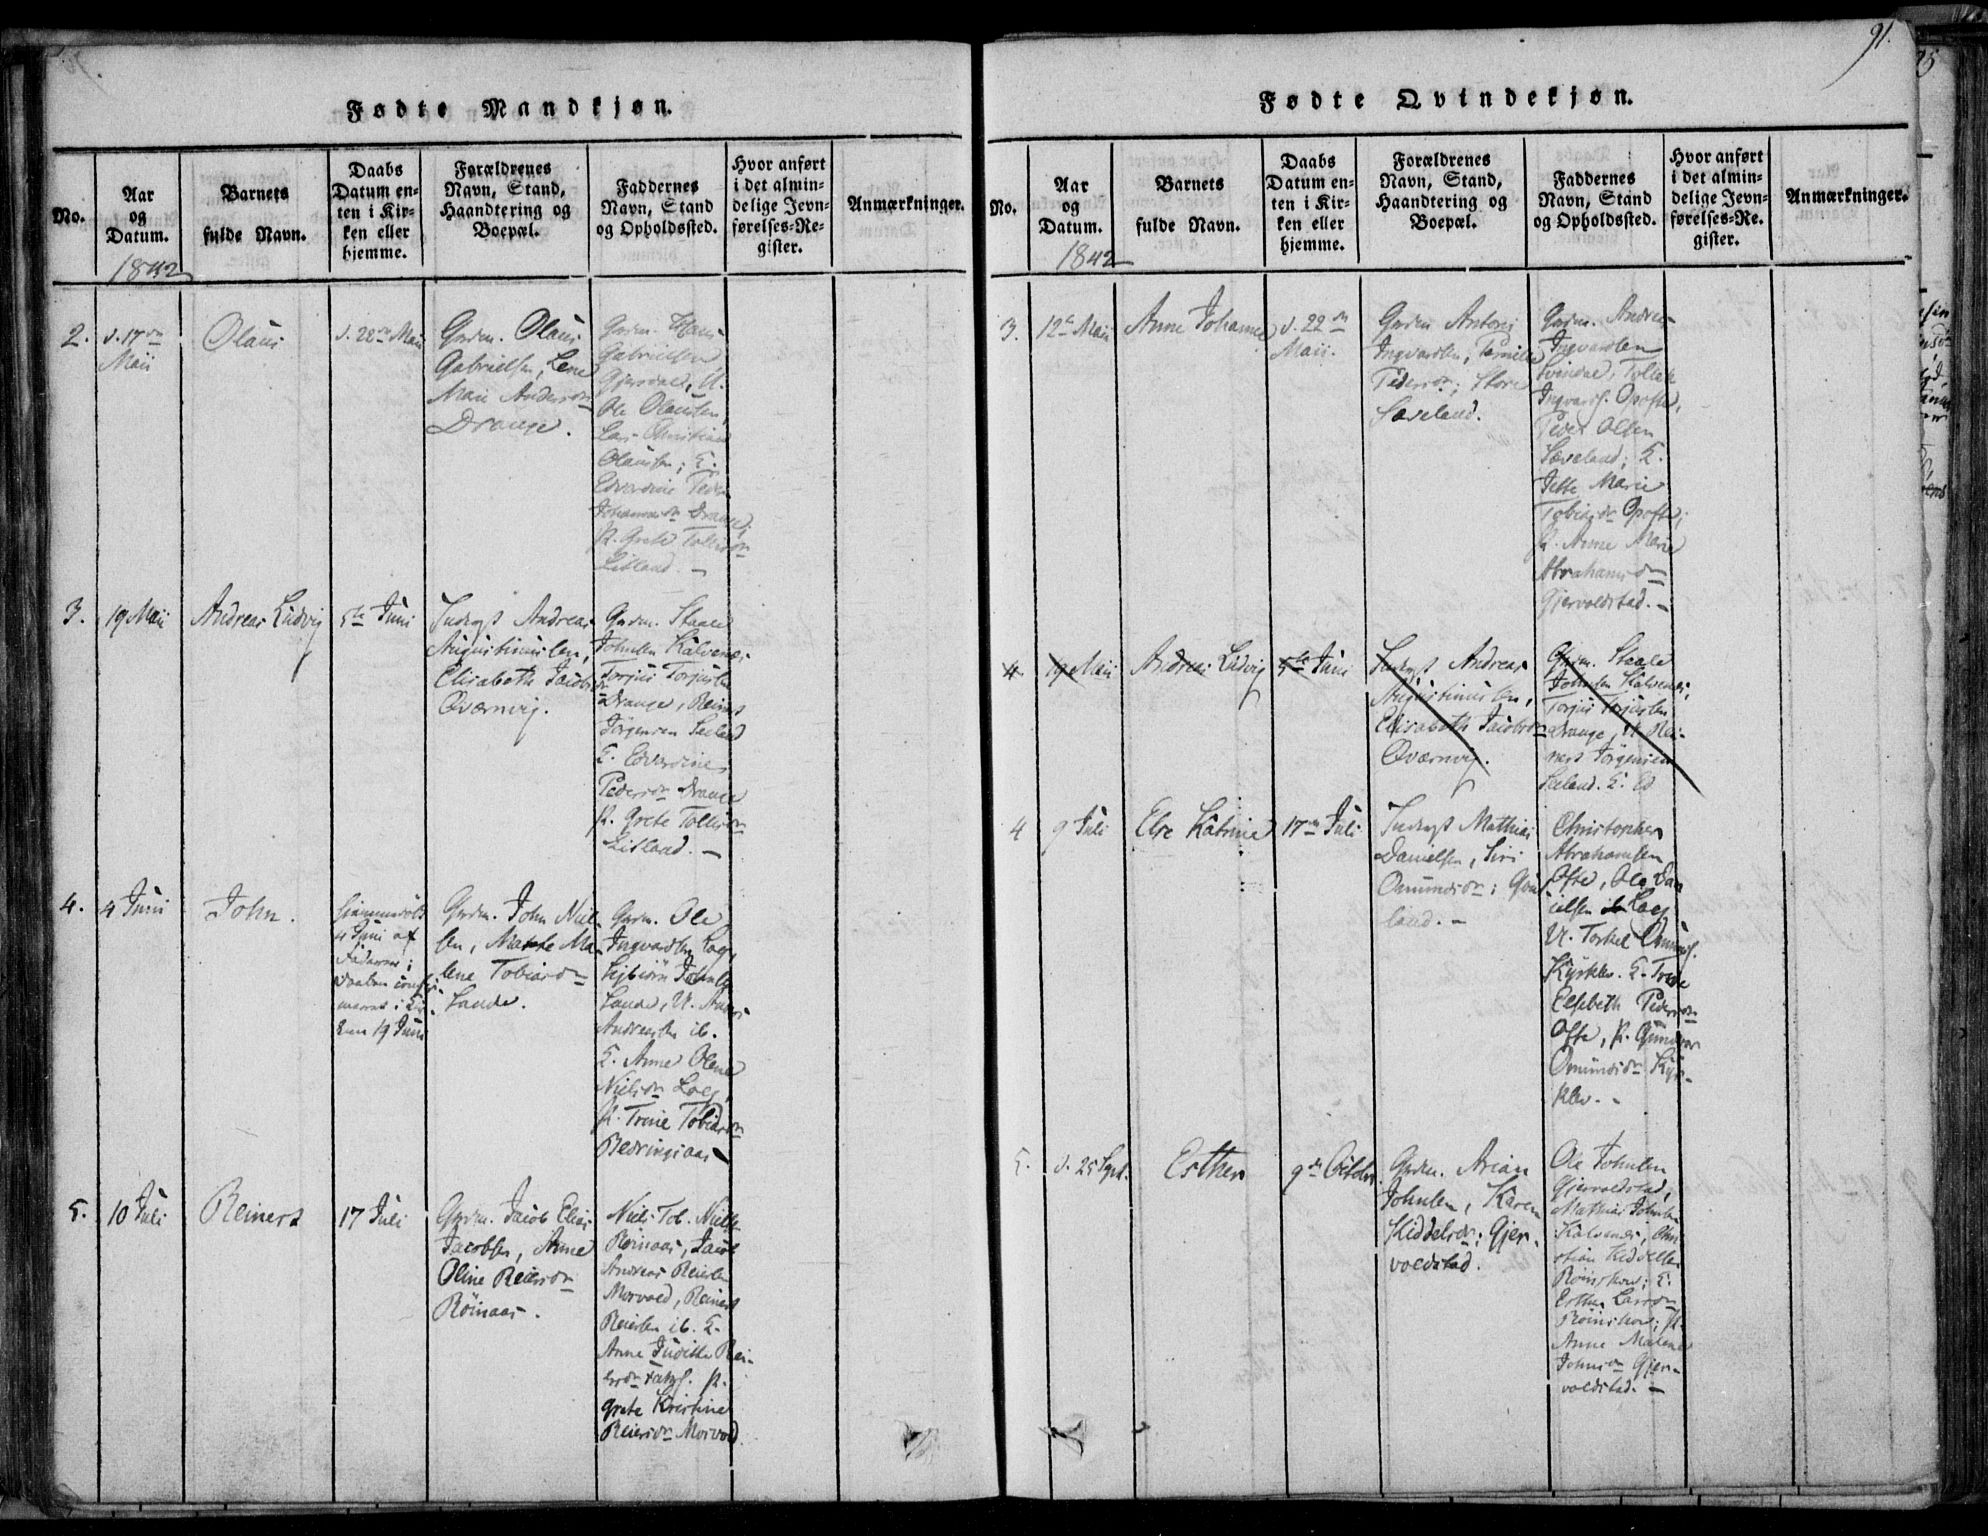 91.
Fødte Mandkjøn.
No.
Aar
og
Datum.
1842
Barnets
fulde Navn.
Daabs
Datum en-
ten i Kir-
ken eller
hjemme.
Forældrenes
Navn, Stand,
Haandtering og
Boepæl.
Faddernes
Navn, Stand
og Opholdssted.
Hvor anført
i det almin-
delige Jevn-
førelses-Re-
gister.
Anmærkninger.
2.
d. 17de
Maii
Olaus
d. 22de Maii
Grdm. Olaus
Gabrielsen, Lene
Marie Andersdr
Drange.
Grdm. Hans
Gabrielsen
Gjervold, U.
Ole Olausen,
Lars Christian
Olausen; E.
Edverdine Peder
Johannesdr Drange;
P. Grete Tollisdr
Litland. —
3.
19 Maii
Andreas Ludvig
5te Juni
Inderst Andreas
Augustinussen,
Elisabeth Jacobsdr
Qværnvig.
Grdm. Staale
Johnsen Kalvenes,
Torjus Torjussen
Drange, Reinert
Jörgensen Seeland
E. Edverdine
Pedersdr Drange
P. Grete Tollisdr
Litland. —
4.
4 Juni
John.
Hjemmedöbt
4 Juni af
Faderen;
Daaben confir-
meret i Kir-
ken 19 Juni
Grdm. John Niel-
sen, Malene Ma-
lene Tobiasdr
Lande.
Grdm. Ole
Ingvardsen Loeg,
Sigbiörn Johnsen
Lande, U. Anders
Andreassen ib.
E. Anne Olene
Nielsdr Loeg,
P. Trine Tobiasdr
Bedringsaas —
5.
10 Juli
Reinert
17 Juli
Grdm. Jacob Elias
Jacobsen, Anne
Oline Reiersdr
Röinaas.
Niels Tob. Nielsen
Röinaas, Jacob
Andreas Reiersen
Morvold, Reinert
Reiersen ib. E.
Anne Judithe Rei-
ersdr P.
Grete Kristine
Reiersdr Morvold.
Fødte Qvindekjøn.
No.
Aar
og
Datum.
1842
Barnets
fulde Navn.
Daabs
Datum en-
ten i Kir-
ken eller
hjemme.
Forældrenes
Navn, Stand,
Haandtering og
Boepæl.
Faddernes
Navn, Stand
og Opholdssted.
Hvor anført
i det almin-
delige Jevn-
førelses-Re-
gister.
Anmærkninger.
3.
12te Maii
Anne Johanne
d. 22de
Maii.
Grdm Antoni
Ingvardsen, Pernille
Pedersdr; Store
Sæveland.
Grdm. Andreas
Ingvardsen
Svindal, Tollak
Ingvards. Opofte,
Peder Olsen
Sæveland; E.
Jette Marie
Tobiasdr Opofte;
P. Anne Marie
Abrahamsdr
Gjervoldstad. —
4.
19 Maii
Andreas Ludvig
5te Juni
Inderst Andreas
Augustinussen,
Elisabeth Jacobsdr
Qværnvig.
Grdm. Staale
Johnsen Kalvenes,
Torjus Torjussen
Drange, U. Rei-
nert Jörgensen
Seeland. E. Ed
4
9 Juli
Else Katrine
17de Juli
Inderst Mathias
Danielsen, Siri
Omundsdr;
land. —
Christopher
Abrahamsen
Ofte, Ole Dan-
ielsen Loeg
U. Torkel Omunds.
Kyrklev. E. Trine
Elsebeth Pedersdr
Ofte, P. Gunder
Omundsdr Kyrk-
klev. —
5.
d. 25 Sept.
Esther
9de Octbr.
Grdm. Arian
Johnsen, Karen
Kiddelsdr; Gjer-
voldstad.
Ole Johnsen
Gjervoldstad,
Mathias Johnsen
Kalvenes, Chri-
stian Kiddelsen
Röinskou; E.
Esther Larsdr
Röinskou; P.
Anne Malene
Johnsdr Gjer-
voldstad. —